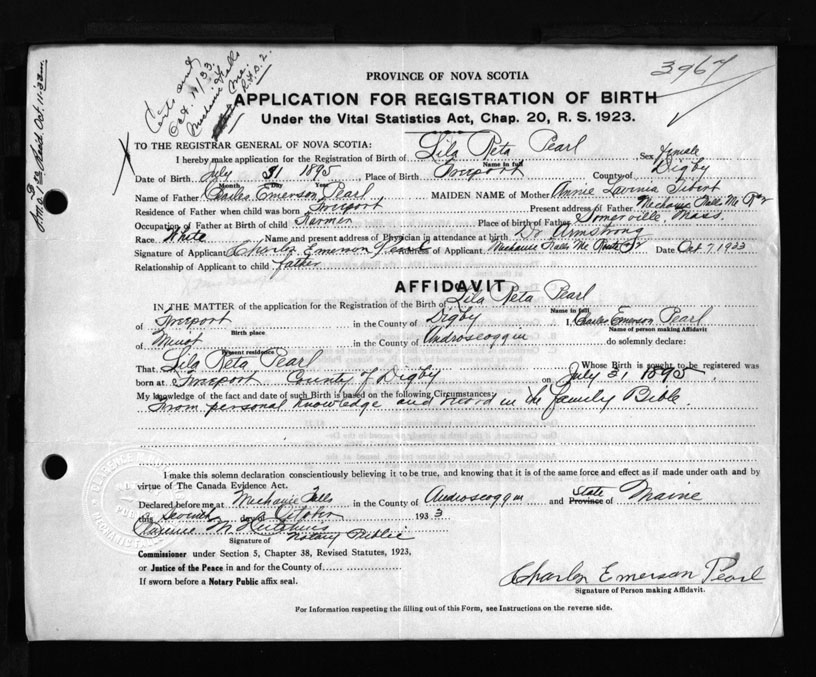 Cert. sent
Oct. 11/33.
Mechanic Falls
Me.
R.F.D. 2.
3967
PROVINCE OF NOVA SCOTIA
APPLICATION FOR REGISTRATION OF BIRTH
Under the Vital Statistics Act, Chap. 20, R. S. 1923.
TO THE REGISTRAR GENERAL OF NOVA SCOTIA:
I hereby make application for the Registration of Birth of Lila Reta Pearl Sex Female
Name in full
Date of Birth July 31 1895 Place of Birth Freeport County of Digby
Month Day Year
Name of Father Charles Emerson Pearl MAIDEN NAME of Mother Annie Lavinia
Residence of Father when child was born Freeport Present address of Father Mechanic Falls Me
Occupation of Father at Birth of child Farmer Place of birth of Father Somerville, Mass.
Race White Name and present address of Physician in attendance at birth Dr Armstrong
Signature of Applicant Charles Emerson Pearl Address of Applicant Mechanic Falls Me Date Oct. 7, 1933
Relationship of Applicant to child father
AFFIDAVIT
IN THE MATTER of the application for the Registration of the Birth of Lila Reta Pearl
Name in full
of Freeport in the County of Digby I, Charles Emerson Pearl
Birth place Name of person making Affidavit
of Minot in the County of Androscoggin do solemnly declare:
Present residence
That Lila Reta Pearl Whose Birth is sought to be registered was
born at Freeport County of Digby on July 31 1895
My knowledge of the fact and date of such Birth is based on the following Circumstances:
From personal knowledge and record in the family Bible.
I make this solemn declaration conscientiously believing it to be true, and knowing that it is of the same force and effect as if made under oath and by
virtue of The Canada Evidence Act.
Declared before me at Mechanic Falls in the County of Androscoggin and State Province of Maine
this Seventh day of October 1933
Clarence M Hutchins Notary Public
Signature of
Commissioner under Section 5, Chapter 38, Revised Statutes, 1923,
or Justice of the Peace in and for the County of
If sworn before a Notary Public affix seal.
Charles Emerson Pearl
Signature of Person making Affidavit.
For Information respecting the filling out of this Form, see Instructions on the reverse side.